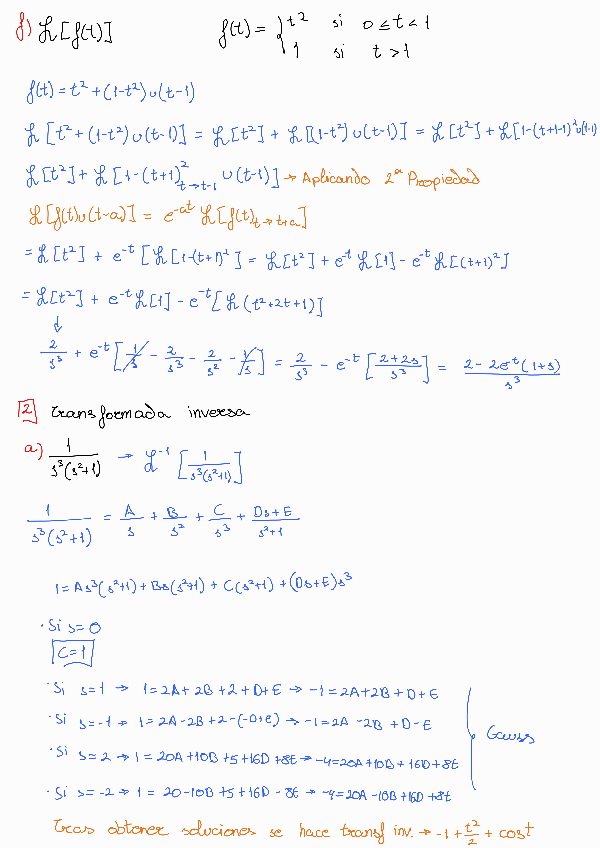 f) ℒ[f(t)]   f(t) = { t² si 0 ≤ t < 1
1 si t > 1
f(t) = t² + (1-t²) u(t-1)
ℒ[t² + (1-t²) u(t-1)] = ℒ[t²] + ℒ[(1-t²) u(t-1)] = ℒ[t²] + ℒ[1-(t+1-1)² u(t-1)
ℒ[t²] + ℒ[1-(t+1)²_{t→t-1} u(t-1)] → Aplicando 2ª Propiedad
ℒ[f(t)u(t-a)] = e^{-at} ℒ[f(t)_{t→t+a}]
= ℒ[t²] + e^{-t} [ℒ[1-(t+1)² = ℒ[t²] + e^{-t} ℒ[1] - e^{-t} ℒ[(t+1)²]
= ℒ[t²] + e^{-t} ℒ[1] - e^{-t} [ℒ(t²+2t+1)]
↓
2/s³ + e^{-t} [1/s - 2/s³ - 2/s² - 1/s] = 2/s³ - e^{-t} [(2+2s)/s³] = (2-2e^{-t}(1+s))/s³
2 Transformada inversa
a) 1/(s³(s²+1)) → ℒ⁻¹ [1/(s³(s²+1))]
1/(s³(s²+1)) = A/s + B/s² + C/s³ + (Ds+E)/(s²+1)
1 = As³(s²+1) + Bs(s²+1) + C(s²+1) + (Ds+E)s³
· Si s=0
C=1
· Si s=1 → 1=2A+2B+2+D+E → -1=2A+2B+D+E
· Si s=-1 → 1=2A-2B+2-(-D+E) → -1=2A-2B+D-E
Gauss
· Si s=2 → 1=20A+10B+5+16D+8E → -4=20A+10B+16D+8E
· Si s=-2 → 1=20-10B+5+16D-8E → -4=20A-10B+16D+8E
Tras obtener soluciones se hace transf inv. → -1+t²/2+cost